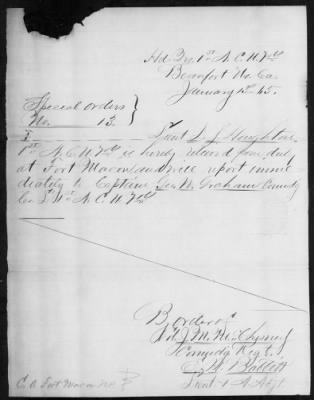 Hd. Qrs. 1st N.C.U. Vols
Beaufort No. Ca.
January 1st 65.
Special Orders
No. 13.
I Lieut L. J. Houghton
1st N.C.U. Vols is hereby relieved from duty
at Fort Macon and will report imme
diately to Captain Geo. W. Graham Comdg
Co. L 1st N.C.U. Vols
By order of
J. M. McChesney
Comdg Regt.
Babbitt
Lieut & A. Adjt.
C.O. Fort Macon N.C.